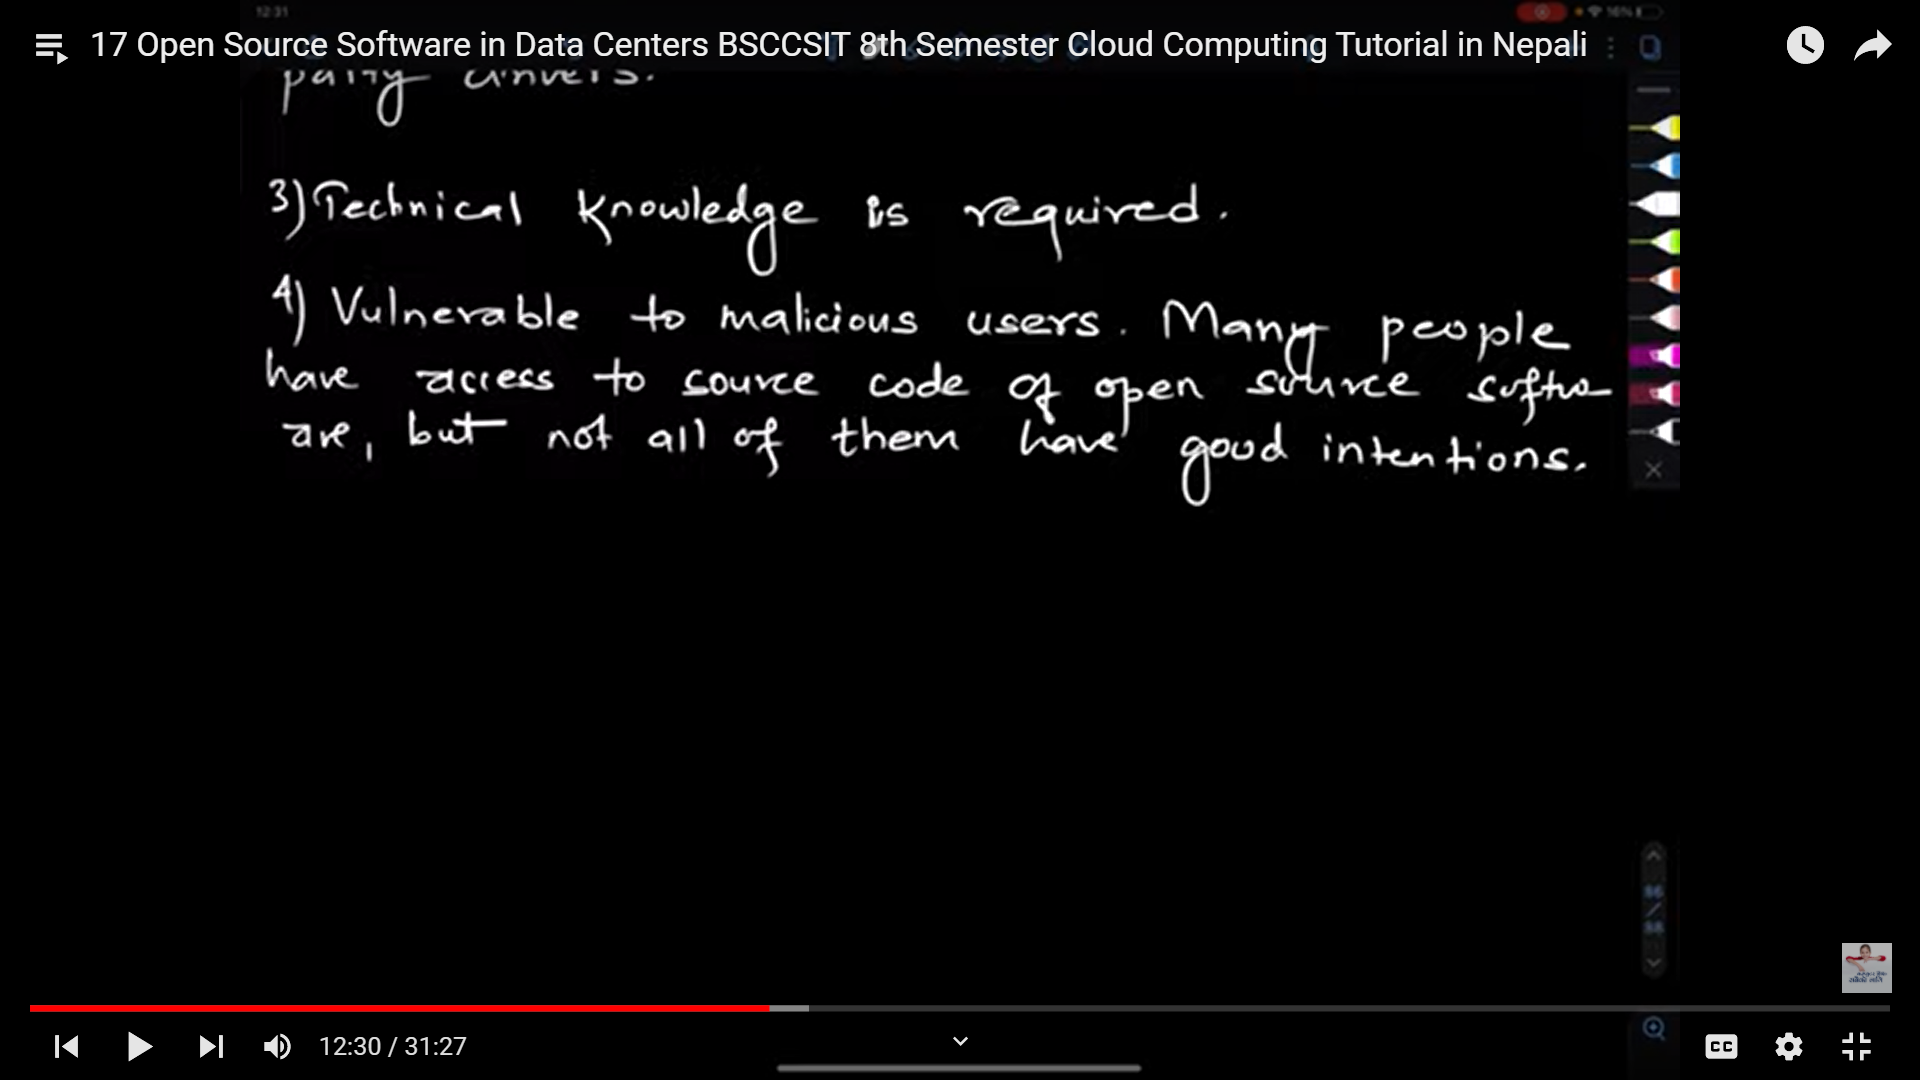 12:31
16%
17 Open Source Software in Data Centers BSCCSIT 8th Semester Cloud Computing Tutorial in Nepali
party drivers.
3) Technical Knowledge is required.
4) Vulnerable to malicious users. Many people
have access to source code of open source softw
are, but not all of them have good intentions.
86
/
88
12:30 / 31:27
CC